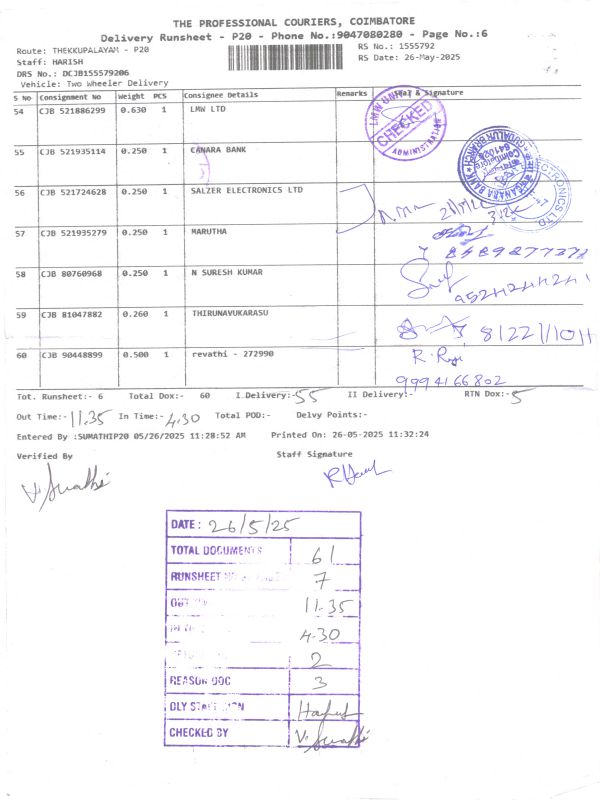 THE PROFESSIONAL COURIERS, COIMBATORE
Delivery Runsheet - P20 - Phone No.:9047080280 - Page No.:6
Route: THEKKUPALAYAM - P20
RS No.: 1555792
Staff: HARISH
RS Date: 26-May-2025
DRS No.: DCJB155579206
Vehicle: Two Wheeler Delivery
S No Consignment No Weight PCS Consignee Details Remarks Seal & Signature
54 CJB 521886299 0.630 1 LMW LTD
LMW UNIT CHECKED ADMINISTRATION
55 CJB 521935114 0.250 1 CANARA BANK
CANARA BANK GUDALUR BRANCH Coimbatore 641020
56 CJB 521724628 0.250 1 SALZER ELECTRONICS LTD
ELECTRONICS LTD
57 CJB 521935279 0.250 1 MARUTHA
58 CJB 80760968 0.250 1 N SURESH KUMAR
59 CJB 81047882 0.260 1 THIRUNAVUKARASU
60 CJB 90448899 0.500 1 revathi - 272990
9994166802
Tot. Runsheet:- 6 Total Dox:- 60 I Delivery:- 55 II Delivery:- RTN Dox:- 5
Out Time:- 11.35 In Time:- 4.30 Total POD:- Delvy Points:-
Entered By :SUMATHIP20 05/26/2025 11:28:52 AM Printed On: 26-05-2025 11:32:24
Verified By Staff Signature
DATE: 26/5/25
TOTAL DOCUMENTS 61
RUNSHEET 7
OUT 11.35
4.30
2
REASON DOC 3
DLY STAFF SIGN
CHECKED BY